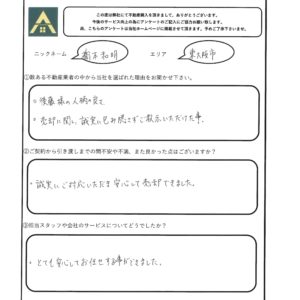 この度は弊社にて不動産購入を頂きまして、ありがとうございます。
今後のサービス向上の為にアンケートのご記入にご協力お願い致します。
尚、こちらのアンケートは当社ホームページに掲載させて頂きます。予めご了承下さいませ。
ニックネーム
エリア 東大阪市
①数ある不動産業者の中から当社を選ばれた理由をお聞かせ下さい。
・後藤様の人柄の良さ
・売却に関し、誠実に包み隠さずご教示いただけた事。
②ご契約から引き渡しまでの間不安や不満、また良かった点はございますか?
・誠実にご対応いただき安心して売却できました。
③担当スタッフや会社のサービスについてどうでしたか?
・とても安心してお任せする事ができました。